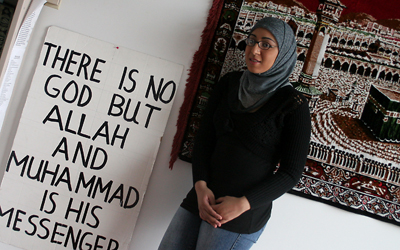 THERE IS NO
GOD BUT
ALLAH
AND
MUHAMMAD
IS HIS
MESSENGER